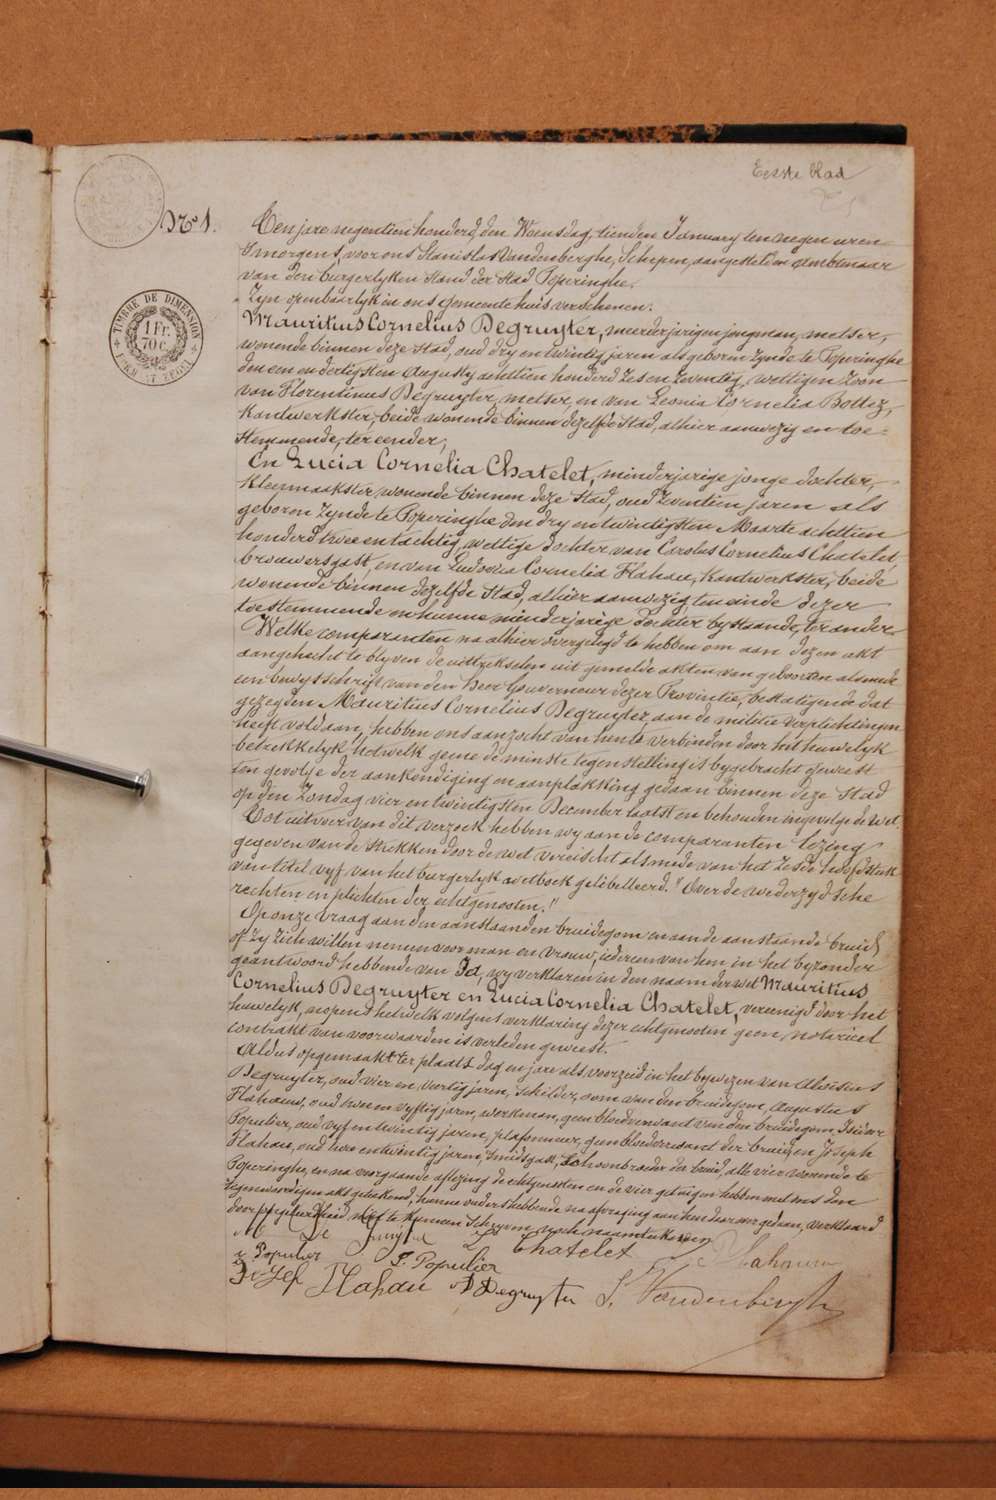 Eerste blad
No 1.
TIMBRE DE DIMENSION
1 Fr.
70 c.
Een jare negentien honderd, den Woensdag, tienden January ten negen uren
smorgens, voor ons Stanislas Vandenberghe, Schepen, aangestelden ambtenaar
van den burgerlyken stand der stad Poperinghe.
Zyn openbaarlyk in ons gemeente huis verschenen.
Mauritius Cornelius Degruyter, meerderjarigen jongman, metser,
wonende binnen deze stad, oud dry en twintig jaren als geboren zynde te Poperinghe
den een en dertigsten Augusty achttien honderd zes en zeventig, wettigen zoon
van Florentinus Degruyter, metser, en van Leonia Cornelia Bottez,
kantwerkster, beide wonende binnen dezelfde stad, alhier aanwezig en toe-
stemmende, ter eender,
En Lucia Cornelia Chatelet, minderjarige jonge dochter,
kleermaakster wonende binnen deze stad, oud zeventien jaren als
geboren zynde te Poperinghe den dry en twintigsten Maarte achttien
honderd twee en tachtig, wettige dochter van Carolus Cornelius Chatelet,
brouwersgast, en van Ludovica Cornelia Flahau, kantwerkster, beide
wonende binnen dezelfde stad, alhier aanwezig ten einde dezer
toestemmende en hunne minderjarige dochter bystaande, ter ander.
Welke comparanten na alhier overgelegd te hebben om aan dezen akt
aangehecht te blyven de uittrekselen uit gemelde akten van geboorten alsmede
een bewysschrift van den Heer Gouverneur dezer Provintie, bestatigende dat
gezegden Mauritius Cornelius Degruyter, aan de militie verplichtingen
heeft voldaan, hebben ons aanzocht van hen te verbinden door het huwelyk
betrekkelyk hetwelk geene de minste tegenstelling is bygebracht geweest
ten gevolge der aankondiging en aanplakking gedaan binnen deze stad
op den Zondag vier en twintigsten December laatst en behouden ingevolge de wet.
Tot uitvoer van dit verzoek hebben wy aan de comparanten lezing
gegeven van de stukken door de wet vereischt alsmede van het zesde hoofdstuk
van titel vyf van het burgerlyk wetboek gelibelleerd "Over de wederzydsche
rechten en plichten der echtgenooten."
Op onze vraag aan den aanstaanden bruidegom en aan de aanstaande bruid
of zy zich willen nemen voor man en vrouw, iedereen van hen in het byzonder
geantwoord hebbende van Ja, wy verklaren in den naam der wet Mauritius
Cornelius Degruyter en Lucia Cornelia Chatelet, vereenigd door het
huwelyk, nopens hetwelk volgens verklaring dezer echtgenooten geen notarieel
contrakt van voorwaarden is verleden geweest.
Aldus opgemaakt ter plaats, dag en jare als voorzeid in het bywezen van Aloisius
Degruyter, oud vier en veertig jaren, schilder, oom van den bruidegom, Augustus
Flahauw, oud twee en vyftig jaren, werkman, geen bloedverwant van den bruidegom, Isidor
Populier, oud vyf en twintig jaren, plafonneur, geen bloedverwant der bruid, en Joseph
Flahau, oud twee en twintig jaren, smidsgast, schoonbroeder der bruid, alle vier wonende te
Poperinghe, en na voorgaande aflezing de echtgenooten en de vier getuigen hebben met ons den
tegenwoordigen akt geteekend, hunne ouders hebbende na afvraging aan hun daarover gedaan, verklaard
door ongeleerdheid niet te kunnen schryven noch naamteekenen
Chatelet
Flahauw
I. Populier
Jozef Flahau
Degruyter
S. Vandenberghe